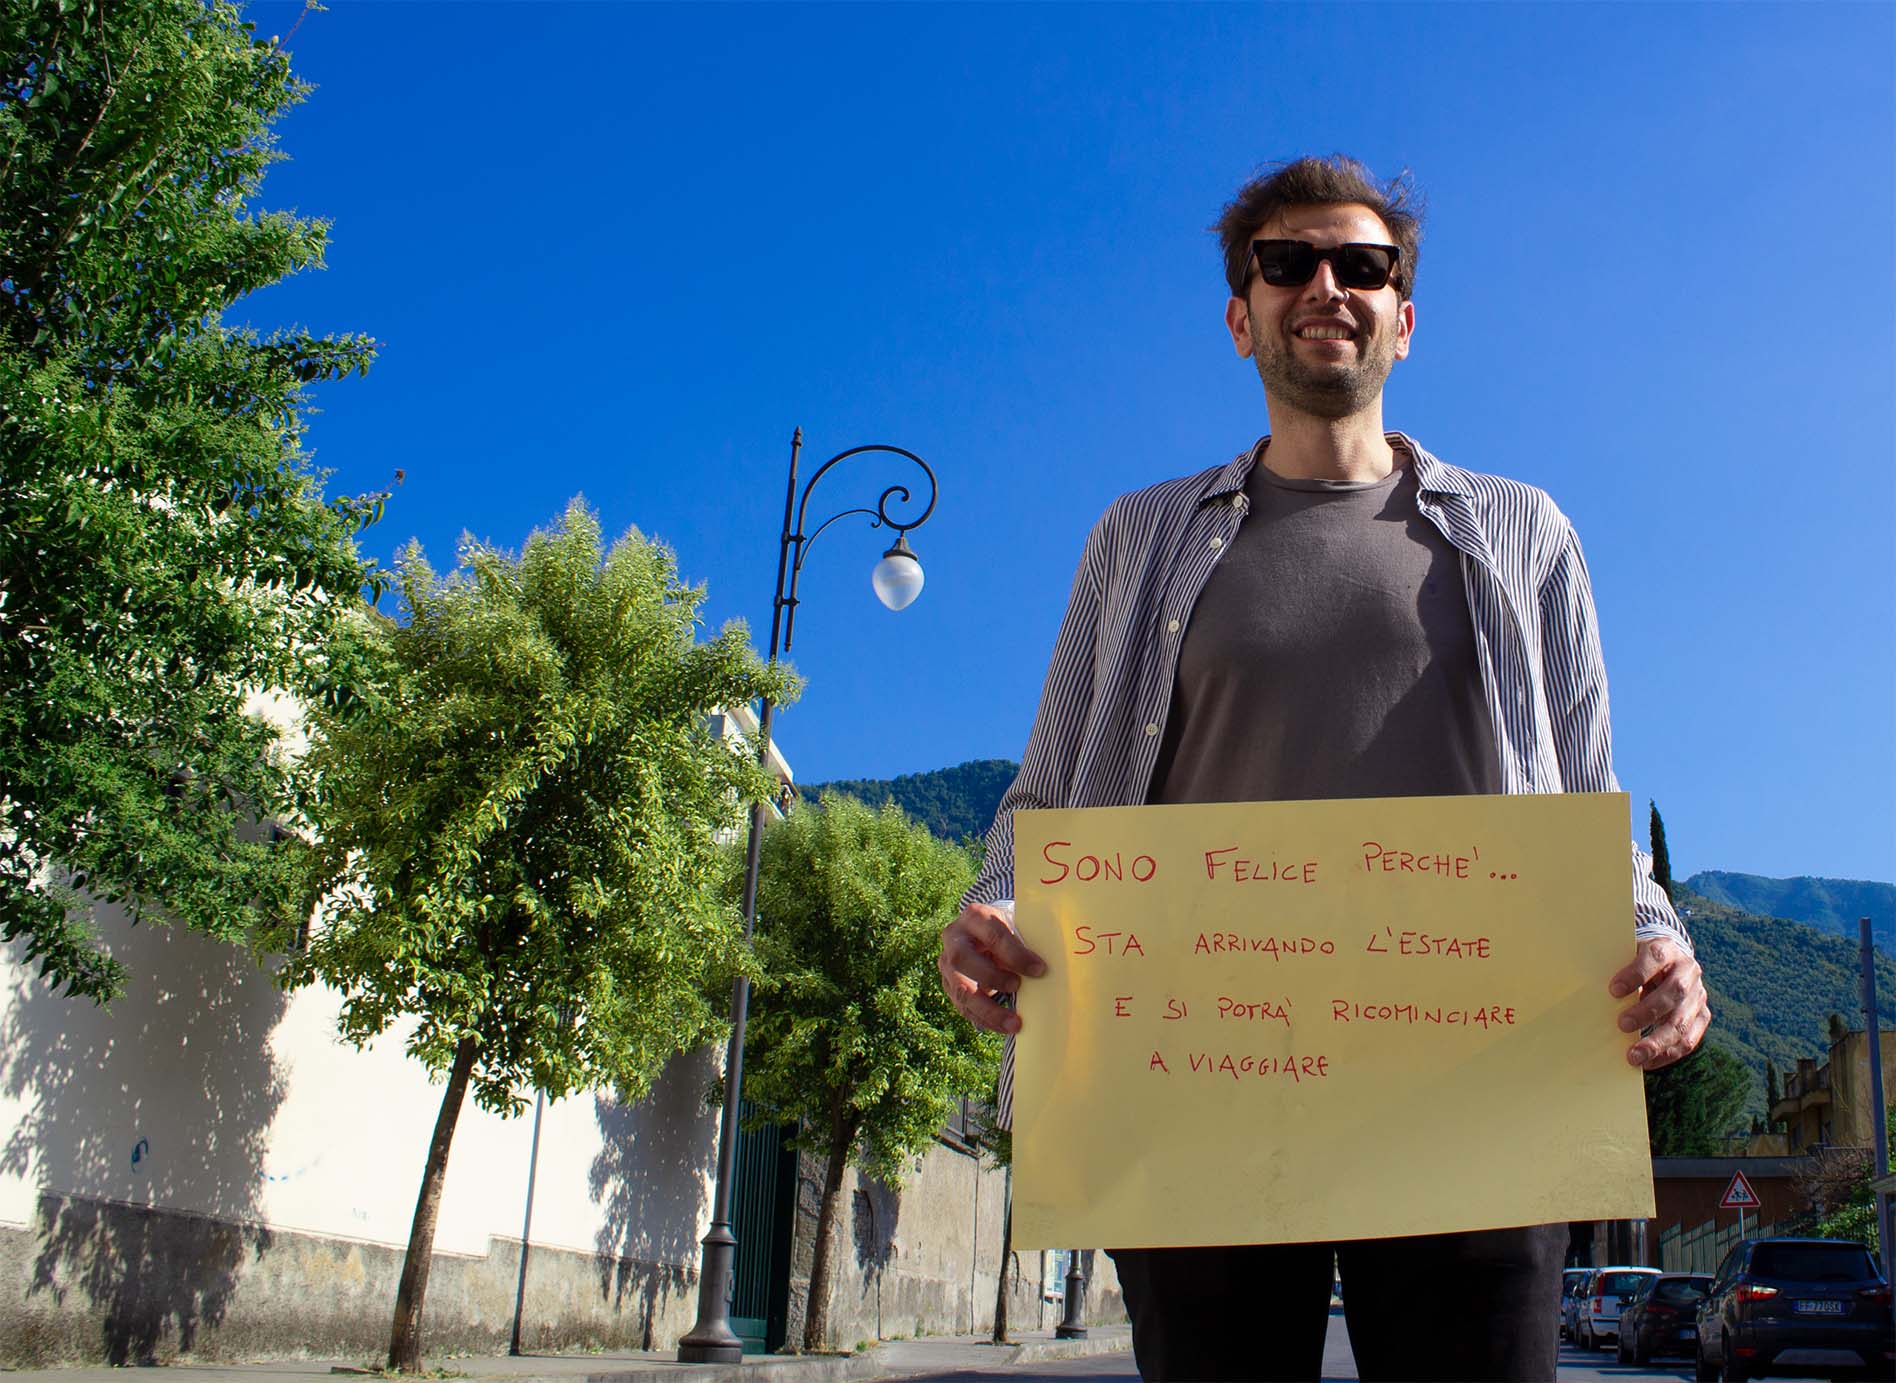 SONO FELICE PERCHE'...
STA ARRIVANDO L'ESTATE
E SI POTRÀ RICOMINCIARE
A VIAGGIARE
FF·770SK